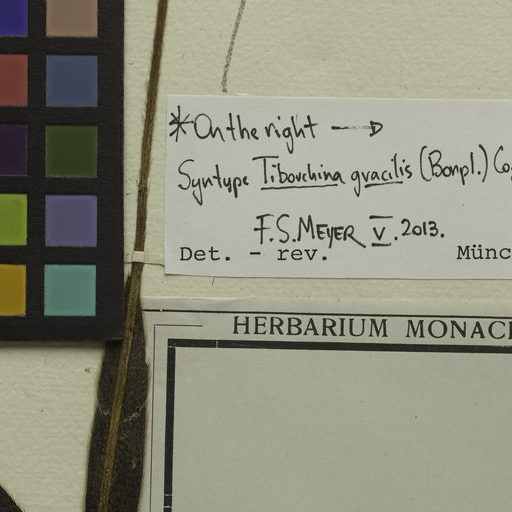 *On the right →
Syntype Tibouchina gracilis (Bonpl.) Co
F.S. MEYER V. 2013.
Det. - rev. Münc
HERBARIUM MONAC